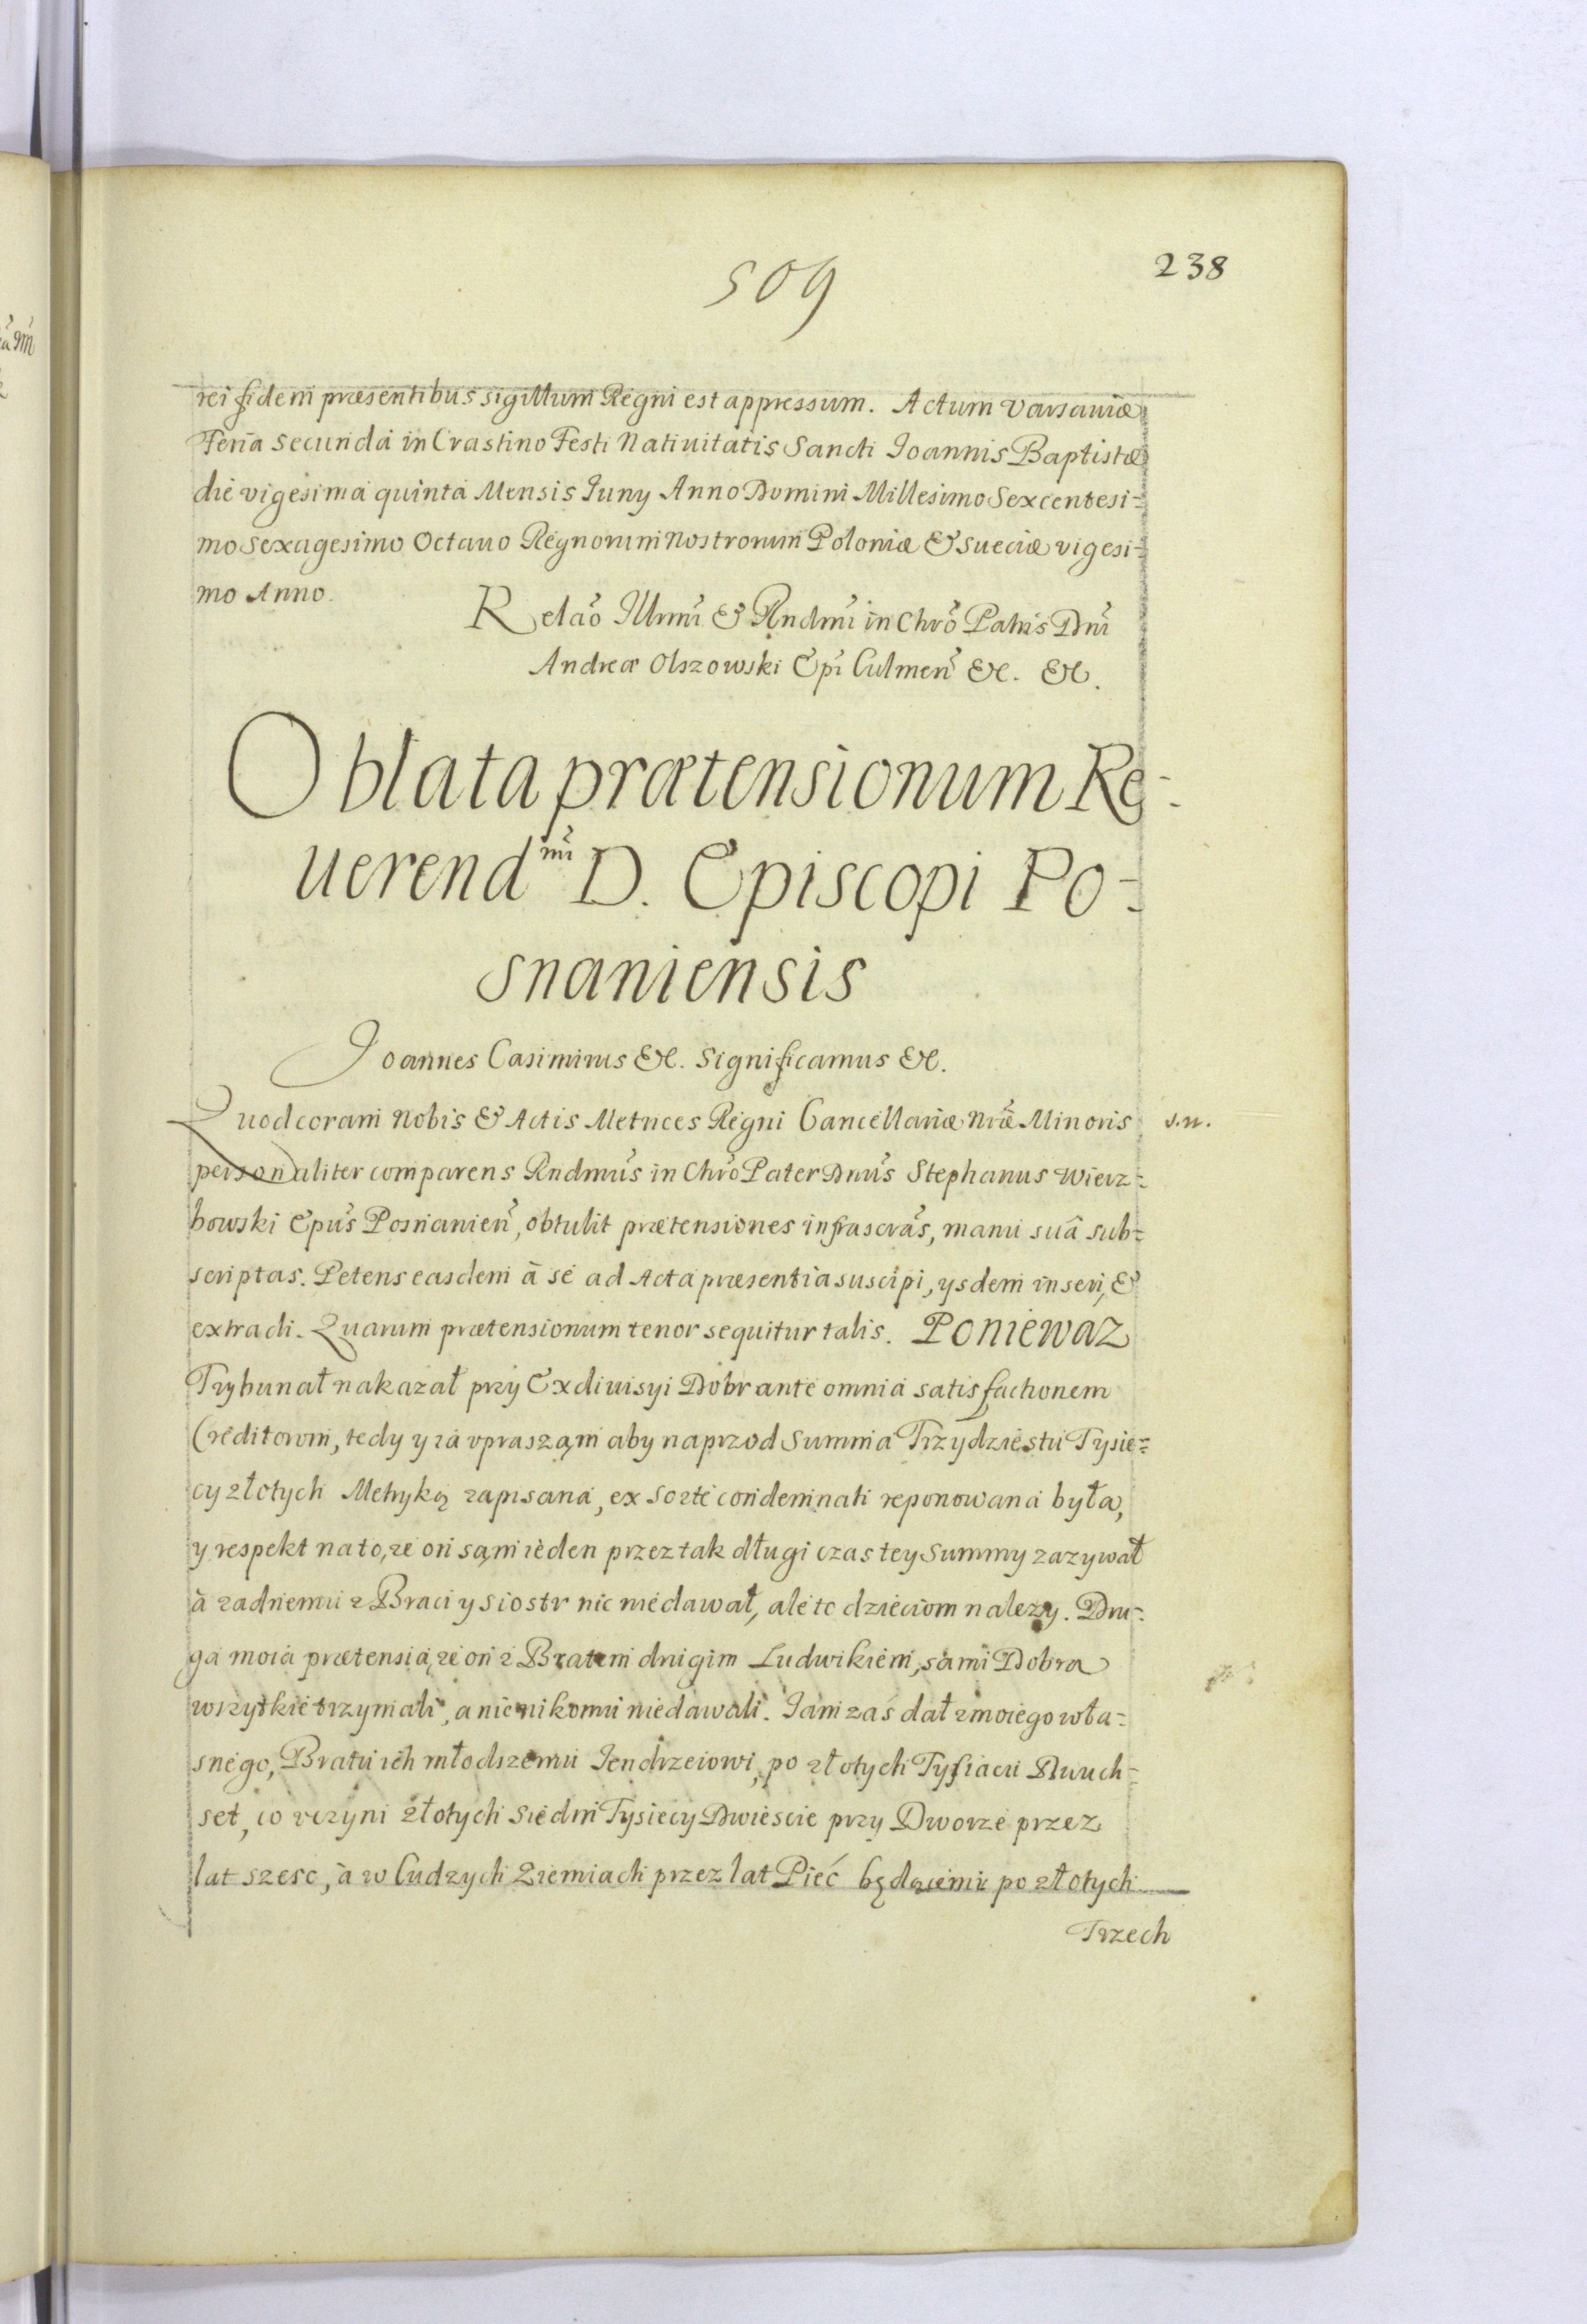 509
238
rei fidem præsentibus sigillum Regni est appressum. Actum Varsauiæ
Feria secunda in Crastino Festi Natiuitatis Sancti Ioannis Baptistæ
die vigesima quinta Mensis Iuny Anno Domini Millesimo Sexcentesi=
mo sexagesimo Octauo Regnorum nostrorum Poloniæ & Sueciæ vigesi=
mo Anno.
Relaõ Illrmi & Rndmi in Chrõ Patris Dni
Andreæ Olszowski Epi Culmen &c. &c.
Oblata prætensionum Re=
uerend^mi D. Episcopi Po=
snaniensis
Joannes Casimirus &c. Significamus &c.
Quod coram Nobis & Actis Metrices Regni Cancellariæ Nræ Minoris
s.n.
personaliter comparens Rndmus in Chro Pater Dnus Stephanus Wierz=
bowski Epus Posnanien, obtulit prætensiones infrascras, manu suâ sub=
scriptas. Petens easdem à se ad Acta præsentia suscipi, ysdem inseri, &
extradi. Quarum prætensionum tenor sequitur talis. Poniewaz
Trybunał nakazał przy Exdiuisyi Dobr ante omnia satisfactionem
Creditorom, tedy y ia vpraszam aby naprzod Summa Trzydziestu Tysie=
cy złotych Metryką zapisana, ex sorte condemnati reponowana była,
y respekt na to, ze on sąm ieden przez tak długi czas tey Summy zazywał
à zadnemu z Braci y siostr nic niedawał, ale to dzieciom nalezy. Dru=
ga moia prætensia, ze on z Bratem drugim Ludwikiem, sami Dobra
wszytkie trzymali, a nic nikomu niedawali. Iam zaś dał z moiego wła=
snego, Bratu ich młodszemu Iendrzeiowi, po złotych Tysiacu Dwuch=
set, co vczyni złotych Siedm Tysiecy Dwiescie przy Dworze przez
lat szesc, à w Cudzych Ziemiach przez lat Pieć będącemu po złotych
Trzech